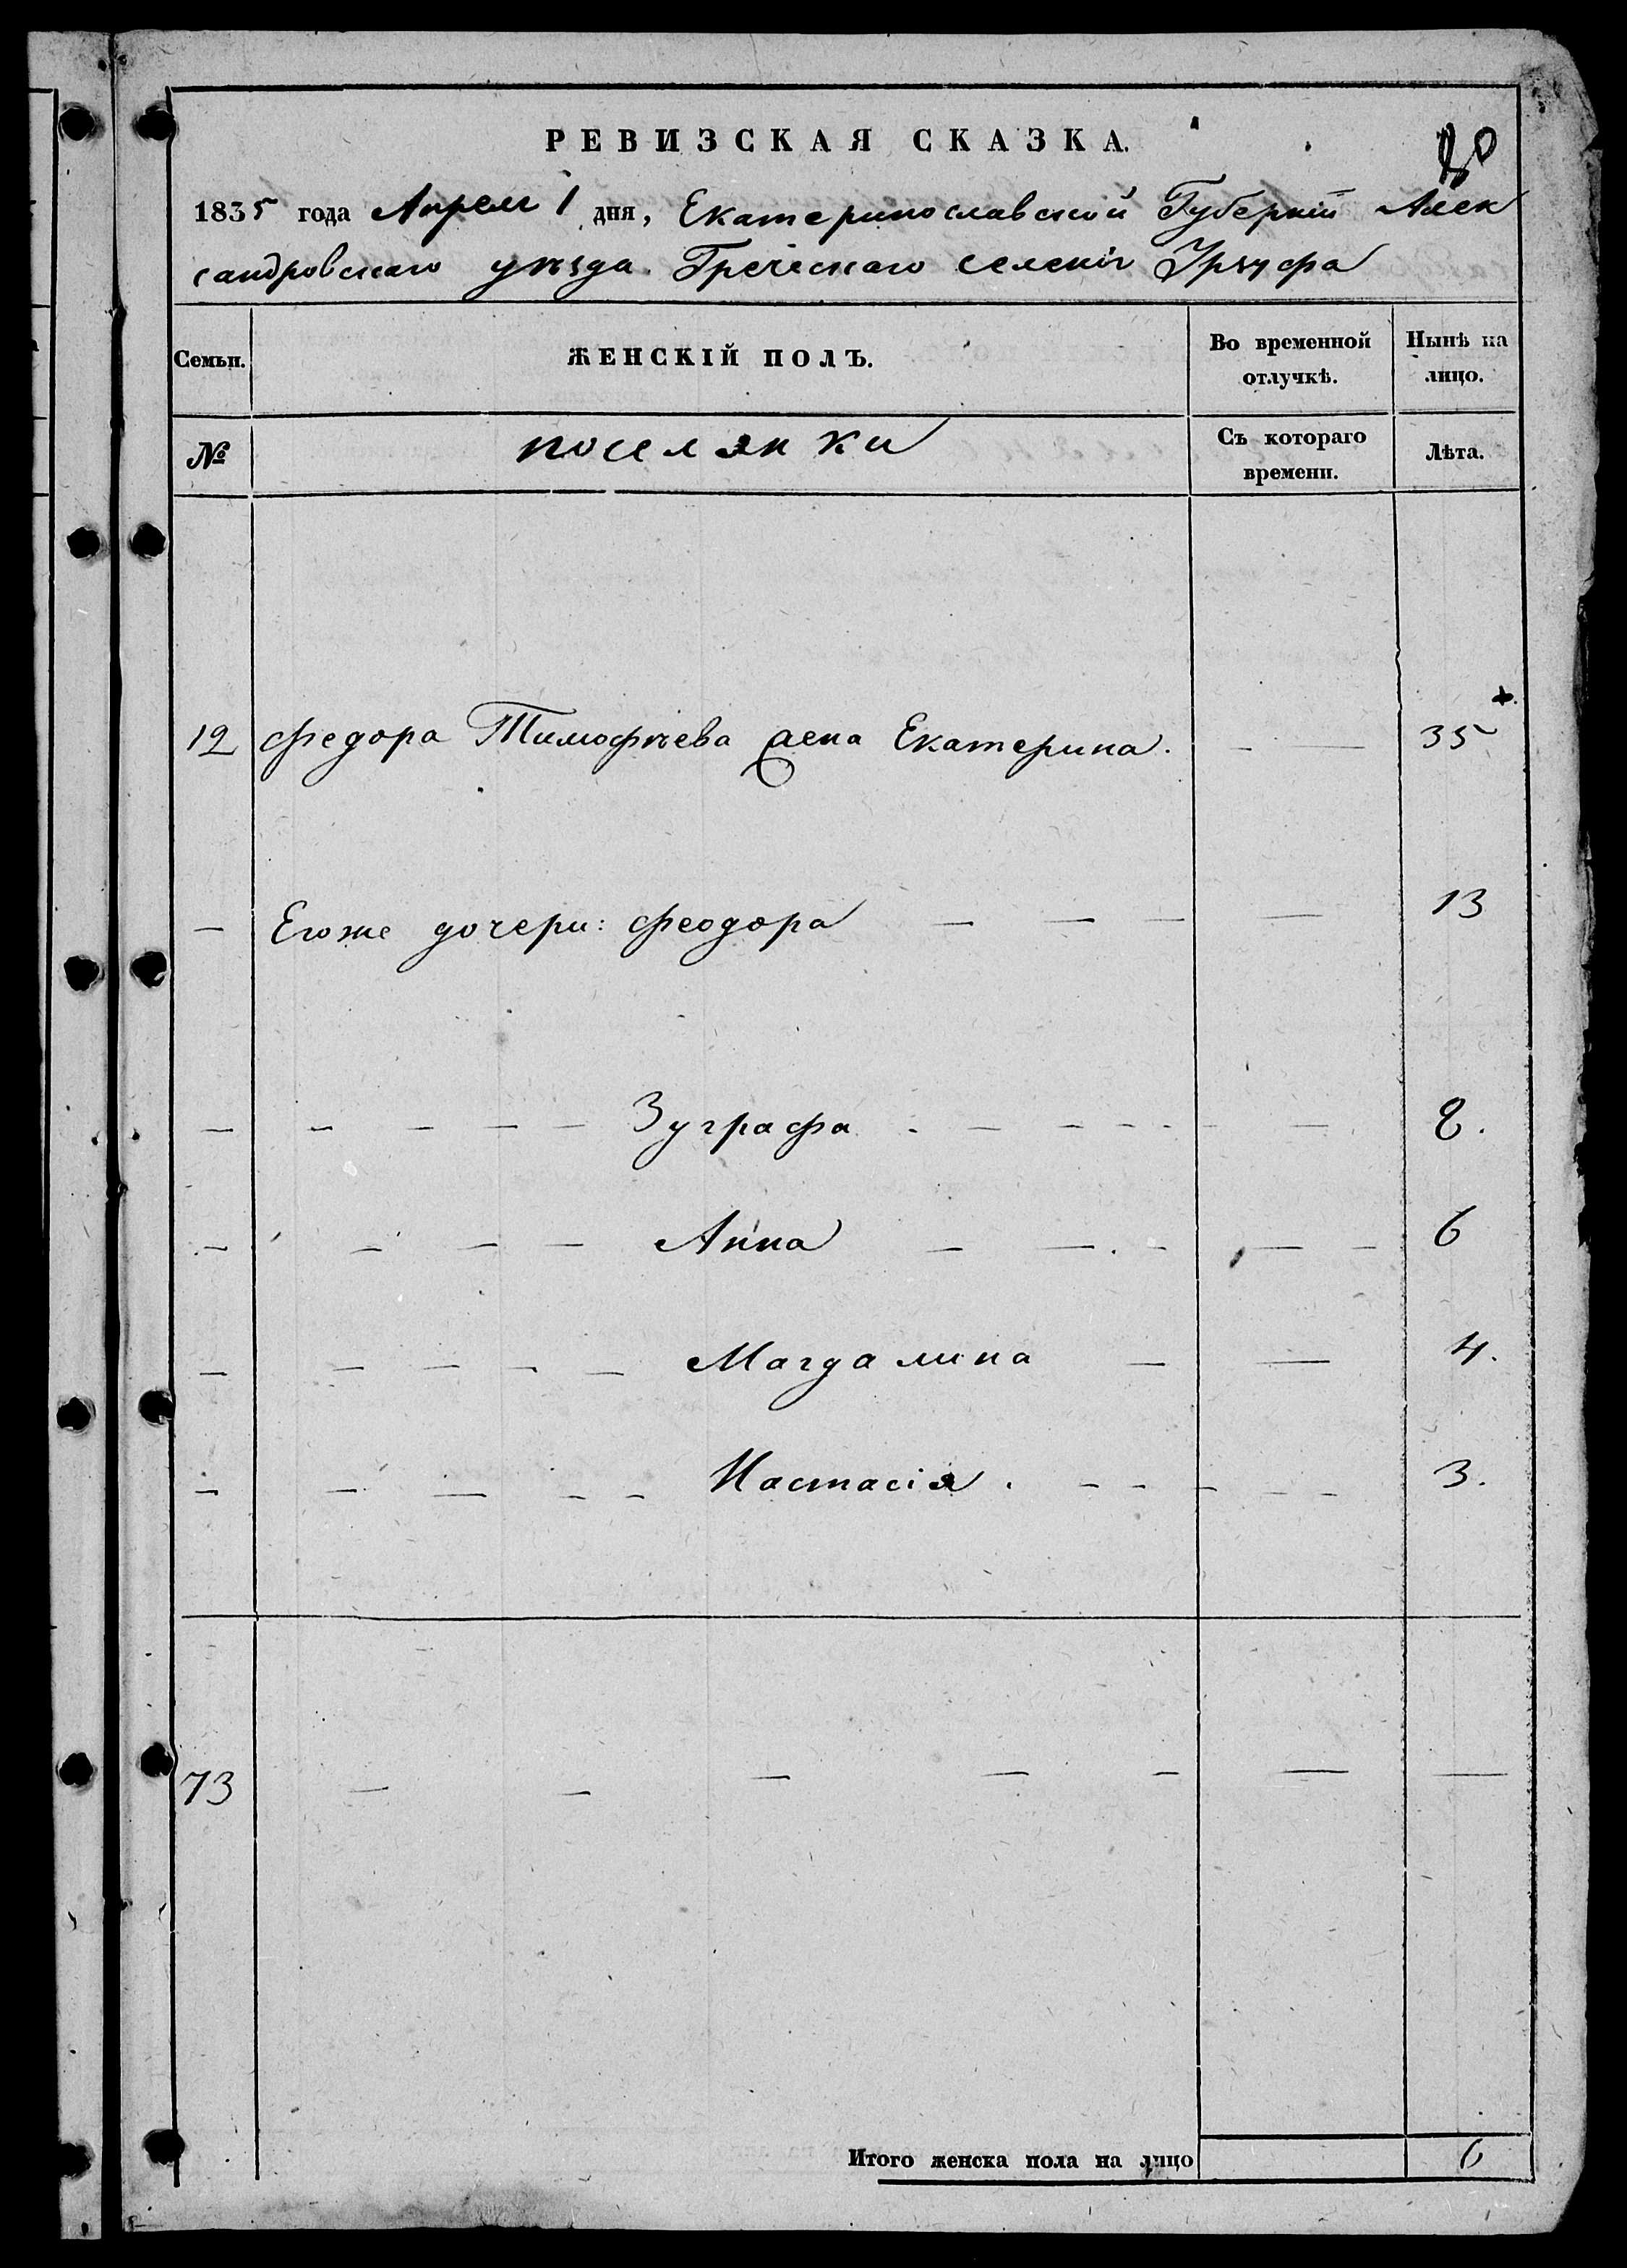 РЕВИЗСКАЯ СКАЗКА.
80
1835 года Апреля 1 дня, Екатеринославской Губерніи Алек
сандровскаго уѣзда Греческаго селенія Урзуфа
Семьи. ЖЕНСКІЙ ПОЛЪ. Во временной отлучкѣ. Нынѣ на лицо.
№ поселянки Съ котораго времени. Лѣта.
12 Федора Тимофѣева жена Екатерина. — — 35
— Егоже дочери: Феодора — — — — 13
— — — — — Зуграфа — — — — 8.
— — — — Анна — — — — — 6
— — — — — Магдалина — — 4.
— — — — — Настасія. — — — — — 3.
73 — — — — — — —
Итого женска пола на лицо 6